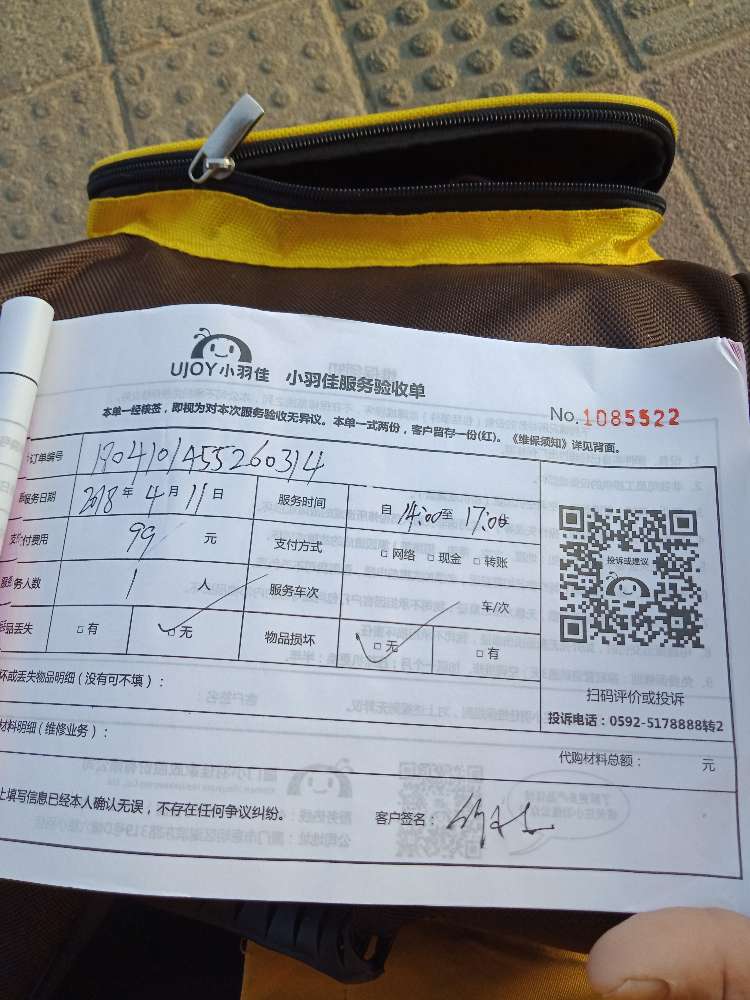 UJOY小羽佳 小羽佳服务验收单
本单一经核签，即视为对本次服务验收无异议。本单一式两份，客户留存一份(红)。《维保须知》详见背面。
No.1085522
订单编号 1804101455260314
服务日期 2018年4月11日 服务时间 自14:00至17:00
付费用 99 元 支付方式 □网络 □现金 □转账
务人数 1 人 服务车次 车/次
品丢失 □有 □无 物品损坏 □无 □有
投诉或建议
扫码评价或投诉
投诉电话：0592-5178888转2
坏或丢失物品明细（没有可不填）：
材料明细（维修业务）：
代购材料总额： 元
上填写信息已经本人确认无误，不存在任何争议纠纷。
客户签名：